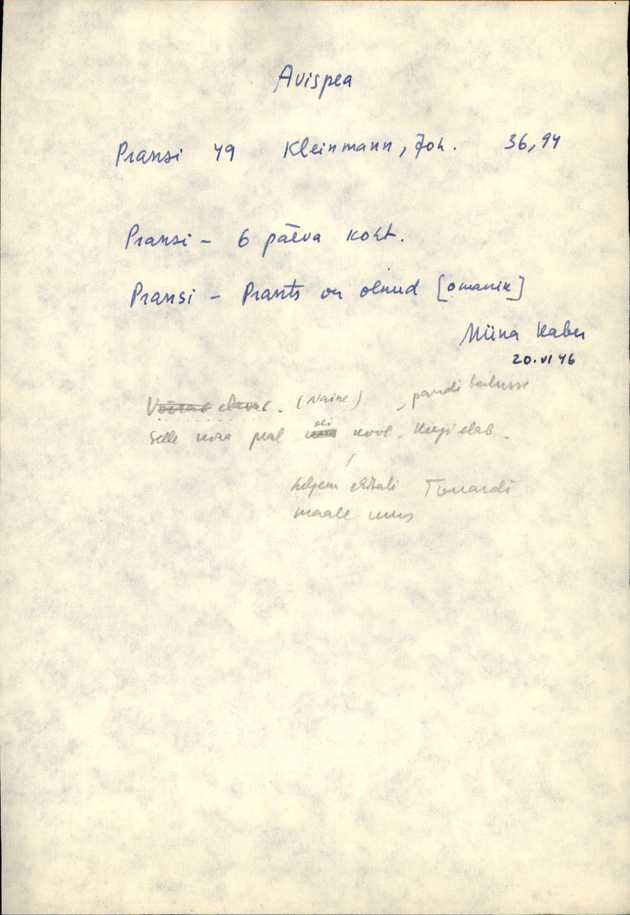 Avispea
Pransi 49 Kleinmann, Joh. 36,94
Pransi - 6 päeva koht.
Pransi - Prants on olnud [omanik]
Miina Kaber
20.VI 46
(Naine) , pandi
Selle koha peal oli kool. Keegi elab.
hiljem ehitati
maale uus